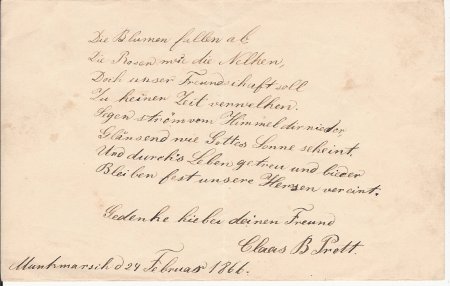 Die Blumen fallen ab
Die Rosen wie die Nelken,
Doch unser Freundschaft soll
Zu keinen Zeit verwelken.
Segen ström vom Himmel dir nieder
Glänsend wie Gottes Sonne scheint.
Und durch's Leben getreu und bieder
Bleiben fest unsere Hersen vereint.
Gedenke hiebei deinen Freund
Claas B Prott.
Munkmarsch d 24 Februar 1866.